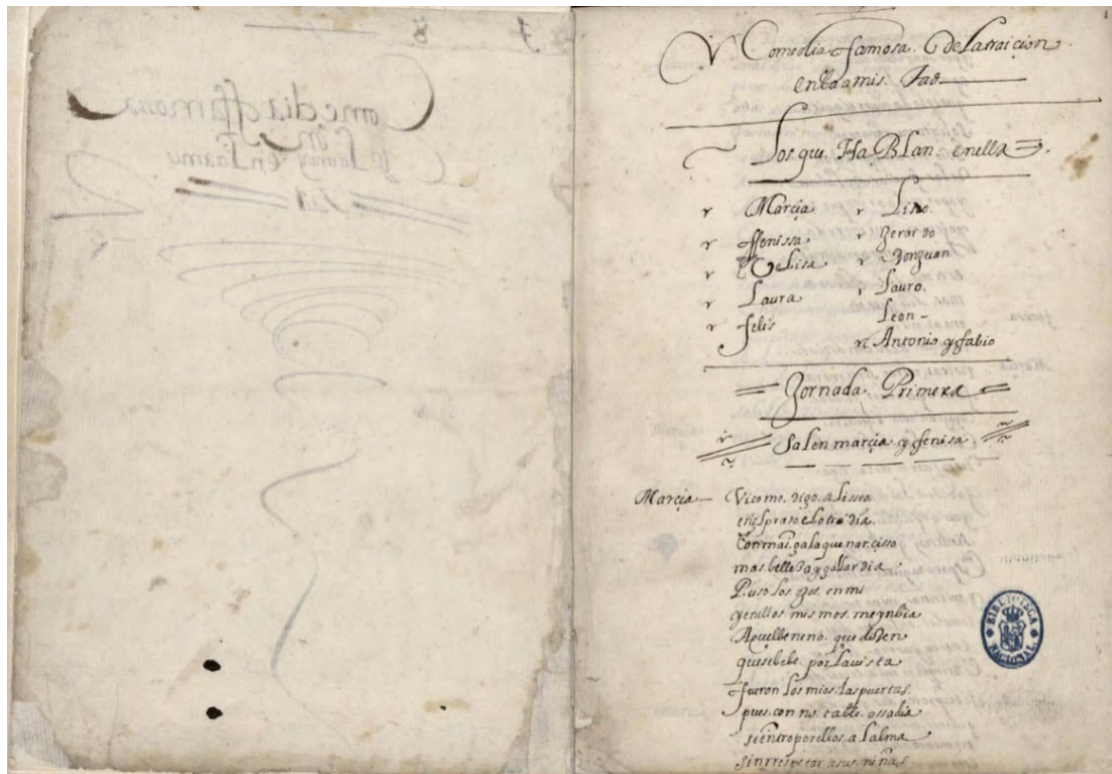 Comedia famosa. De la traicion
en la amis. tad
Los que. Ha Blan. enella
Marçia
ffenissa
Belisa
Laura
felis
Liso.
Gerardo
Donjuan
Lauro.
Leon-
Antonio y fabio
Jornada. Primera
Salen marçia y fenisa
Marçia- Vicomo. digo. a Lisseo
enel prado el otro dia.
con mas. gala que narcisso
mas. belleza y gallardia
Puso los ojos. en mi
y en ellos. mismos. me ynbia
Aquel beneno. que dizen
que se bebe. por la vista
fueron los mios. las puertas.
pues. con no. osadia
se entro por ellos. a l alma
sin rrespetar. a sus. niñas.
BIBLIOTECA NACIONAL